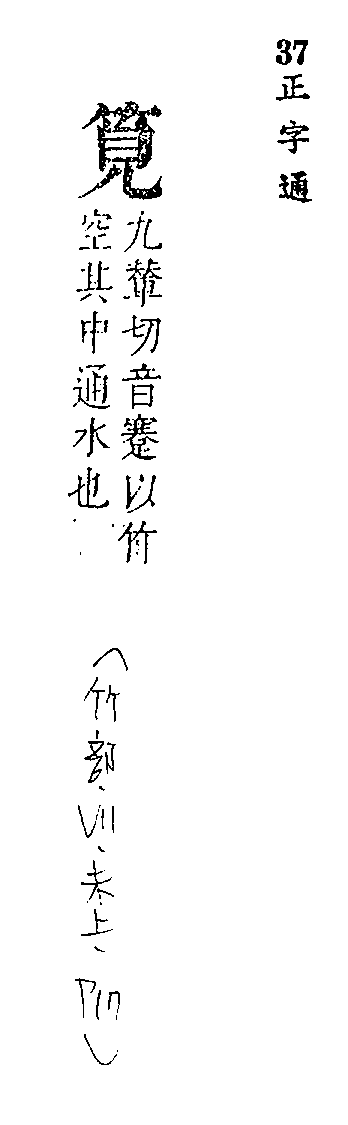 37正字通
筧
九輦切音蹇以竹
空其中通水也
(竹部、VII、未上、P17)